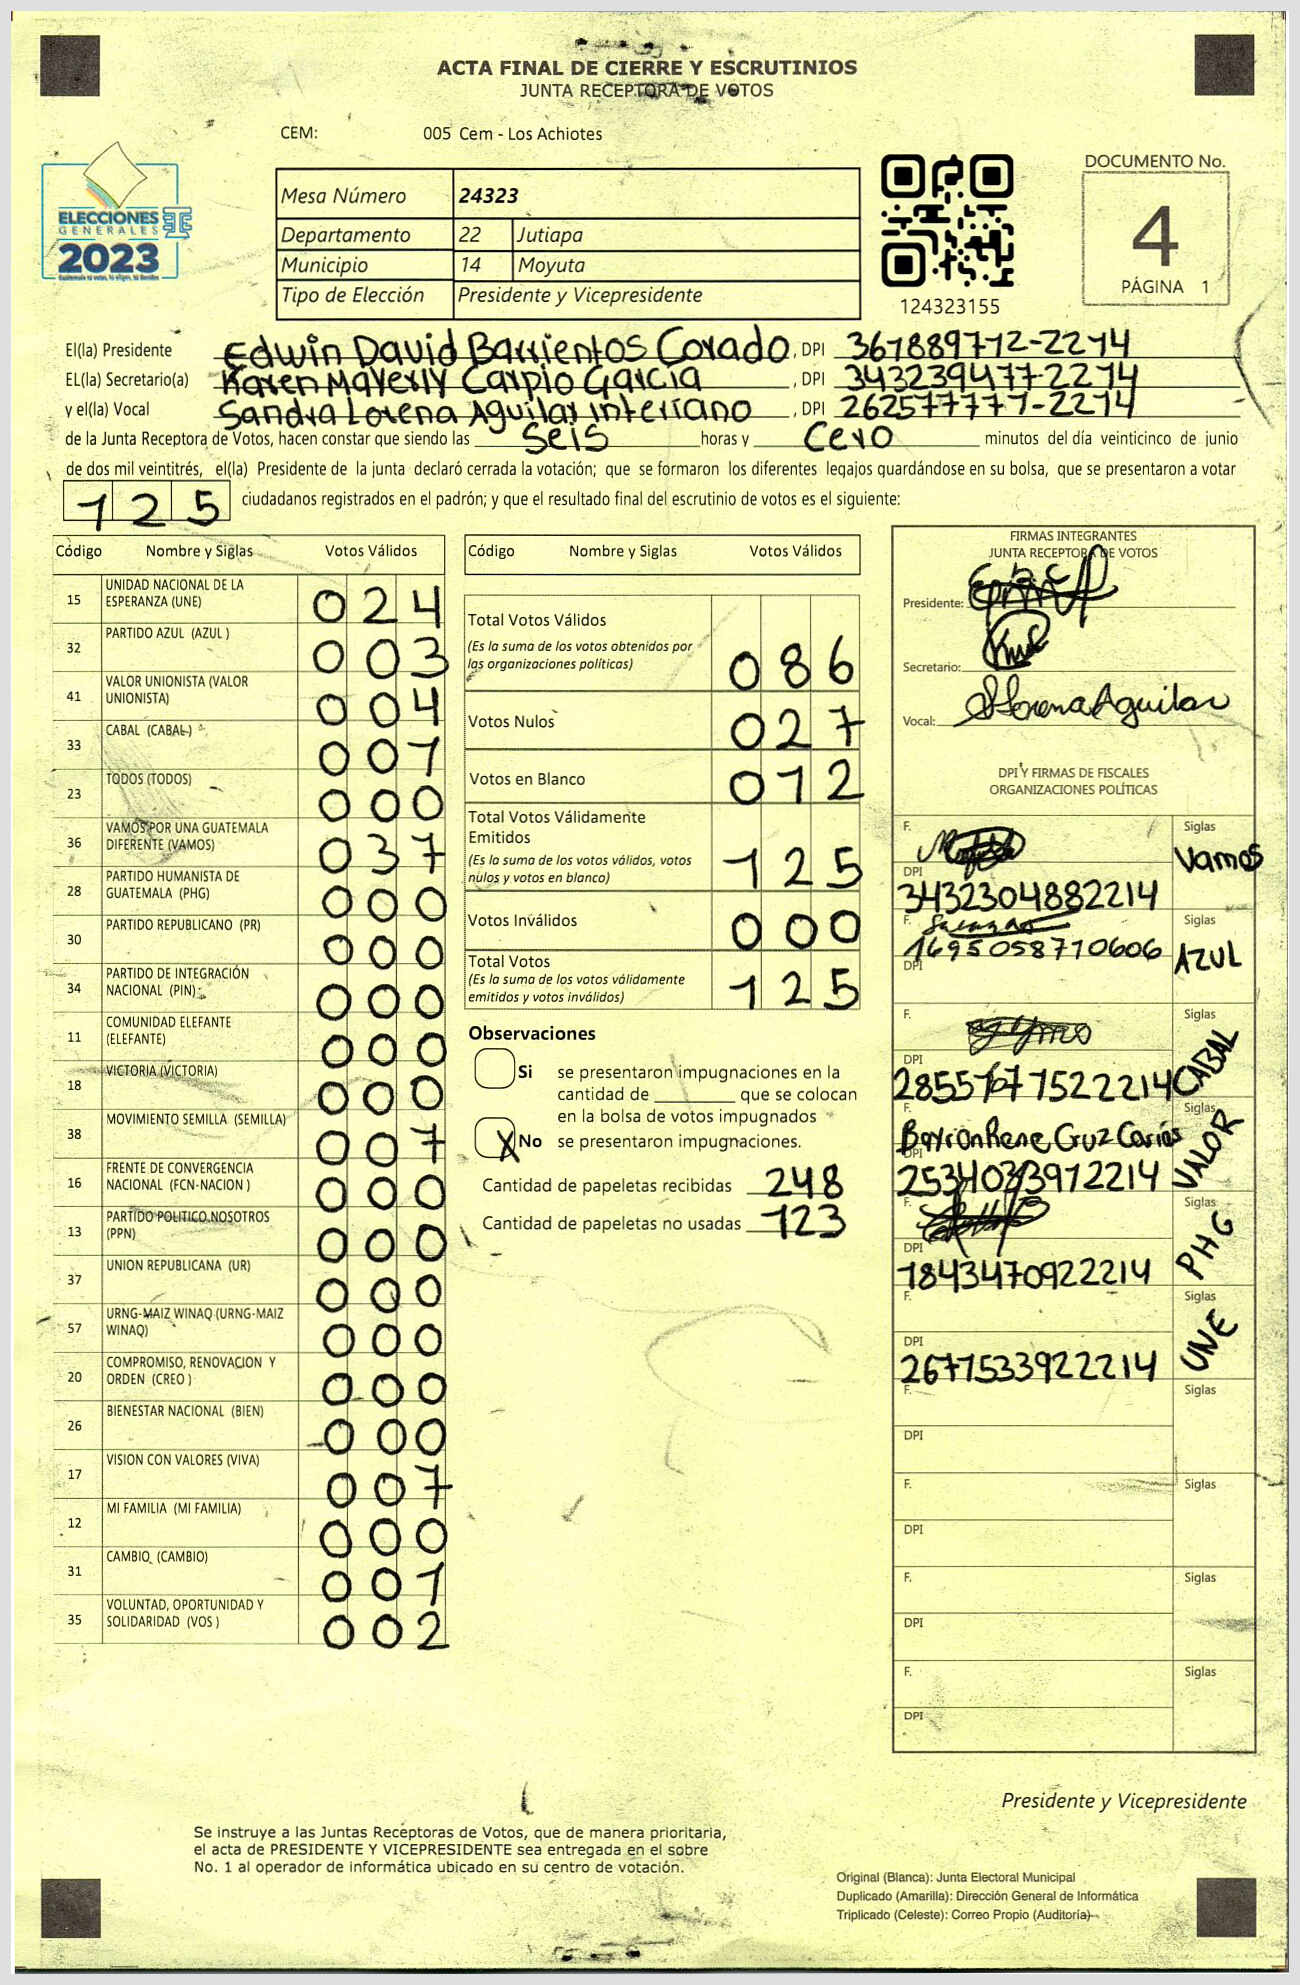 ACTA FINAL DE CIERRE Y ESCRUTINIOS
JUNTA RECEPTORA DE VOTOS
CEM: 005 Cem - Los Achiotes
ELECCIONES
GENERALES
2023
Mesa Número 24323
Departamento 22 Jutiapa
Municipio 14 Moyuta
Tipo de Elección Presidente y Vicepresidente
124323155
DOCUMENTO No.
4
PÁGINA 1
El(la) Presidente Edwin David Barrientos Corado, DPI 361889712-2214
EL(la) Secretario(a) Karen Mayerly Carpio García, DPI 343239477-2214
y el(la) Vocal Sandra Lorena Aguilar Interiano, DPI
de la Junta Receptora de Votos, hacen constar que siendo las Seis horas y Cero minutos del día veinticinco de junio
de dos mil veintitrés, el(la) Presidente de la junta declaró cerrada la votación; que se formaron los diferentes legajos quardándose en su bolsa, que se presentaron a votar
125 ciudadanos registrados en el padrón; y que el resultado final del escrutinio de votos es el siguiente:
Código Nombre y Siglas Votos Válidos
15 UNIDAD NACIONAL DE LA ESPERANZA (UNE) 024
32 PARTIDO AZUL (AZUL ) 003
41 VALOR UNIONISTA (VALOR UNIONISTA) 004
33 CABAL (CABAL ) 001
23 TODOS (TODOS) 000
36 VAMOS POR UNA GUATEMALA DIFERENTE (VAMOS) 037
28 PARTIDO HUMANISTA DE GUATEMALA (PHG) 000
30 PARTIDO REPUBLICANO (PR) 000
34 PARTIDO DE INTEGRACIÓN NACIONAL (PIN) 000
11 COMUNIDAD ELEFANTE (ELEFANTE) 000
18 VICTORIA (VICTORIA) 000
38 MOVIMIENTO SEMILLA (SEMILLA) 007
16 FRENTE DE CONVERGENCIA NACIONAL (FCN-NACION ) 000
13 PARTIDO POLITICO NOSOTROS (PPN) 000
37 UNION REPUBLICANA (UR) 000
57 URNG-MAIZ WINAQ (URNG-MAIZ WINAQ) 000
20 COMPROMISO, RENOVACION Y ORDEN (CREO ) 000
26 BIENESTAR NACIONAL (BIEN) 000
17 VISION CON VALORES (VIVA) 007
12 MI FAMILIA (MI FAMILIA) 000
31 CAMBIO (CAMBIO) 001
35 VOLUNTAD, OPORTUNIDAD Y SOLIDARIDAD (VOS ) 002
Código Nombre y Siglas Votos Válidos
Total Votos Válidos 086
(Es la suma de los votos obtenidos por
las organizaciones políticas)
Votos Nulos 027
Votos en Blanco 012
Total Votos Válidamente
Emitidos 125
(Es la suma de los votos válidos, votos
nulos y votos en blanco)
Votos Inválidos 000
Total Votos 125
(Es la suma de los votos válidamente
emitidos y votos inválidos)
Observaciones
Si se presentaron impugnaciones en la
cantidad de ________ que se colocan
en la bolsa de votos impugnados
X No se presentaron impugnaciones.
Cantidad de papeletas recibidas 248
Cantidad de papeletas no usadas 123
FIRMAS INTEGRANTES
JUNTA RECEPTORA DE VOTOS
Presidente:
Secretario:
Vocal: SLorena Aguilar
DPI Y FIRMAS DE FISCALES
ORGANIZACIONES POLÍTICAS
F. Siglas Vamos
DPI 3432304882214
F. Siglas AZUL
DPI 1695058710606
F. Siglas CABAL
DPI
F. Bayron Rene Cruz Carías Siglas VALOR
DPI
F. Siglas PHG
DPI 1843470922214
F. Siglas UNE
DPI 2671533922214
F. Siglas
DPI
F. Siglas
DPI
F. Siglas
DPI
F. Siglas
DPI
Presidente y Vicepresidente
Se instruye a las Juntas Receptoras de Votos, que de manera prioritaria,
el acta de PRESIDENTE Y VICEPRESIDENTE sea entregada en el sobre
No. 1 al operador de informática ubicado en su centro de votación.
Original (Blanca): Junta Electoral Municipal
Duplicado (Amarilla): Dirección General de Informática
Triplicado (Celeste): Correo Propio (Auditoría)